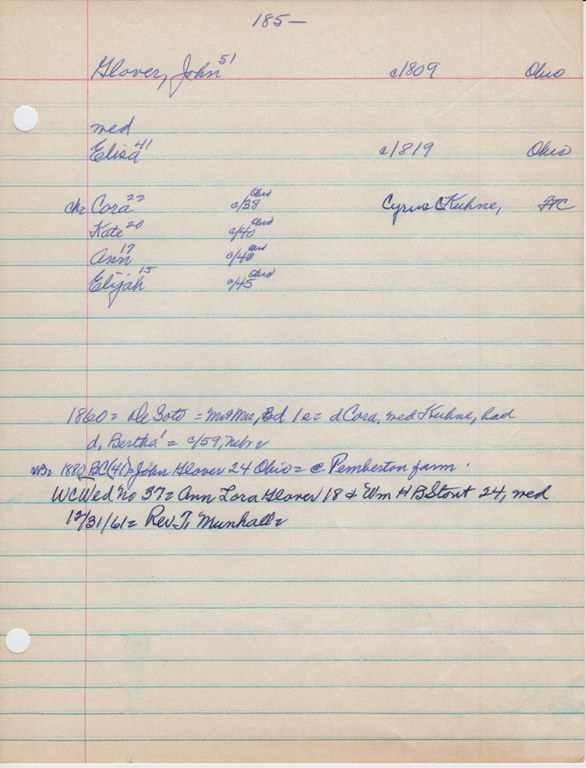 185—
Glover, John 51 c1809 Ohio
med
Elisa 41 c/1819 Ohio
ch= Cora 22 c/38 Ohio Cyrus C Kuhne,
Kate 20 c/40 Ohio
Ann 17 Ohio
Elijah 15 c/45 Ohio
1860= De Soto = Bd = d Cora, med Kuhne, had
d, Bertha 1 = c/59, Neb=
NB= 1880 BC(41)= John Glover 24 Ohio= @ Pemberton farm.
WCWed No 37= Ann Lora Glover 18 & Wm H B Stout 24, med
12/31/61= Rev. T. Munhall=